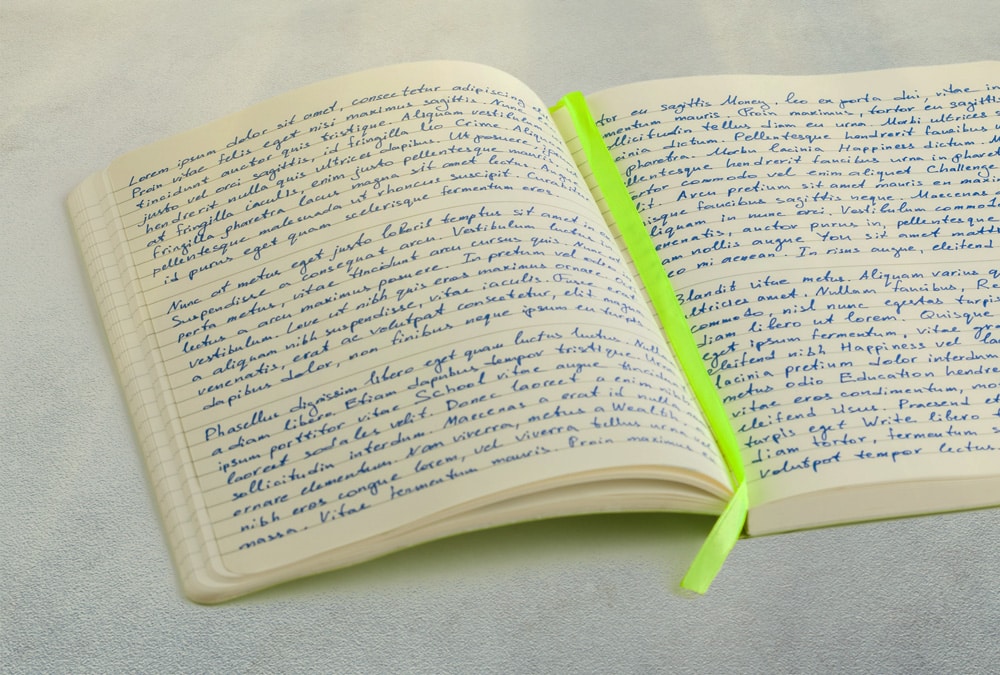 Lorem ipsum dolor sit amet, consectetur adipiscing
Proin vitae felis eget nisi maximus sagittis. Nunc
tincidunt auctor quis tristique. Aliquam vestibulum
justo vel orci sagittis, id fringilla leo Crime. Aliqu
hendrerit nulla quis ultrices dapibus. Ut posuere
at fringilla iaculis, enim justo pellentesque mauris
fringilla pharetra lacus magna sit amet lectus. Aenean
pellentesque malesuada ut rhoncus suscipit. Curabit
id purus eget quam scelerisque fermentum eros
Nunc at metus eget justo laboris temptus sit amet
Suspendisse a consequat arcu. Vestibulum luctus
porta metus, vitae tincidunt arcu cursus quis. Nunc
lectus a arcu maximus posuere. In pretium vel
vestibulum. Love ut nibh quis eros maximus ornare
a aliquam nibh suspendisse, vitae iaculis. Fusce erat
venenatis, erat ac volutpat consectetur, elit magna
dapibus dolor, non finibus neque ipsum eu turpis
Phasellus dignissim libero eget quam luctus luctus. Null
a diam libero. Etiam dapibus tempor tristique.
ipsum porttitor vitae School vitae augue tincidunt
laoreet sodales velit. Donec laoreet a enim
sollicitudin interdum. Maecenas a erat id nulla
ornare elementum. Nam viverra, metus a Wealth
nibh eros congue lorem, vel viverra tellus urna
massa. Vitae fermentum mauris. Proin maximus
tor eu sagittis Money. Leo ex porta dui, vitae in
mentum mauris. Proin maximus, tortor eu sagitti
llicitudin tellus diam eu urna. Morbi ultrices
inia dictum. Pellentesque hendrerit faucibus
pharetra. Morbi lacinia Happiness dictum. M
llentesque hendrerit faucibus urna in pharet
ortor commodo vel enim aliquet Challeng
it. Arcu pretium sit amet mauris en magn
isque faucibus sagittis neque. Maecenas
liquam in nunc orci. Vestibulum commo
enenatis, auctor purus in, pellentesque
am mollis augue. You sit amet matt
co mi aenean. In risus augue, eleifend
Blandit vitae metus. Aliquam varius
ultricies amet. Nullam faucibus, Re
commodo, nisl nunc egestas turpi
diam libero ut lorem. Quisque
eget ipsum fermentum, vitae gra
eleifend nibh Happiness vel la
lacinia pretium dolor interdum
metus odio Education hendre
vitae eros condimentum, mo
eleifend usus. Praesend
turpis eget Write libero
diam tortor, fermentum
volutpat tempor lectus.